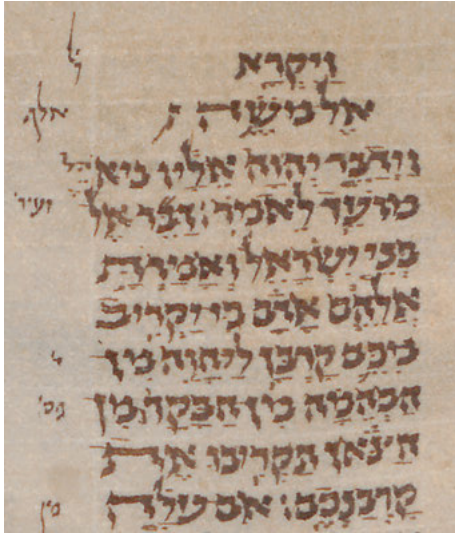 ויקרא
אל משה
וידבר יהוה אליו מאהל
מועד לאמר׃ דבר אל
בני ישראל ואמרת
אלהם אדם כי יקריב
מכם קרבן ליהוה מן
הבהמה מן הבקר ומן
הצאן תקריבו את
קרבנכם׃ אם עלה